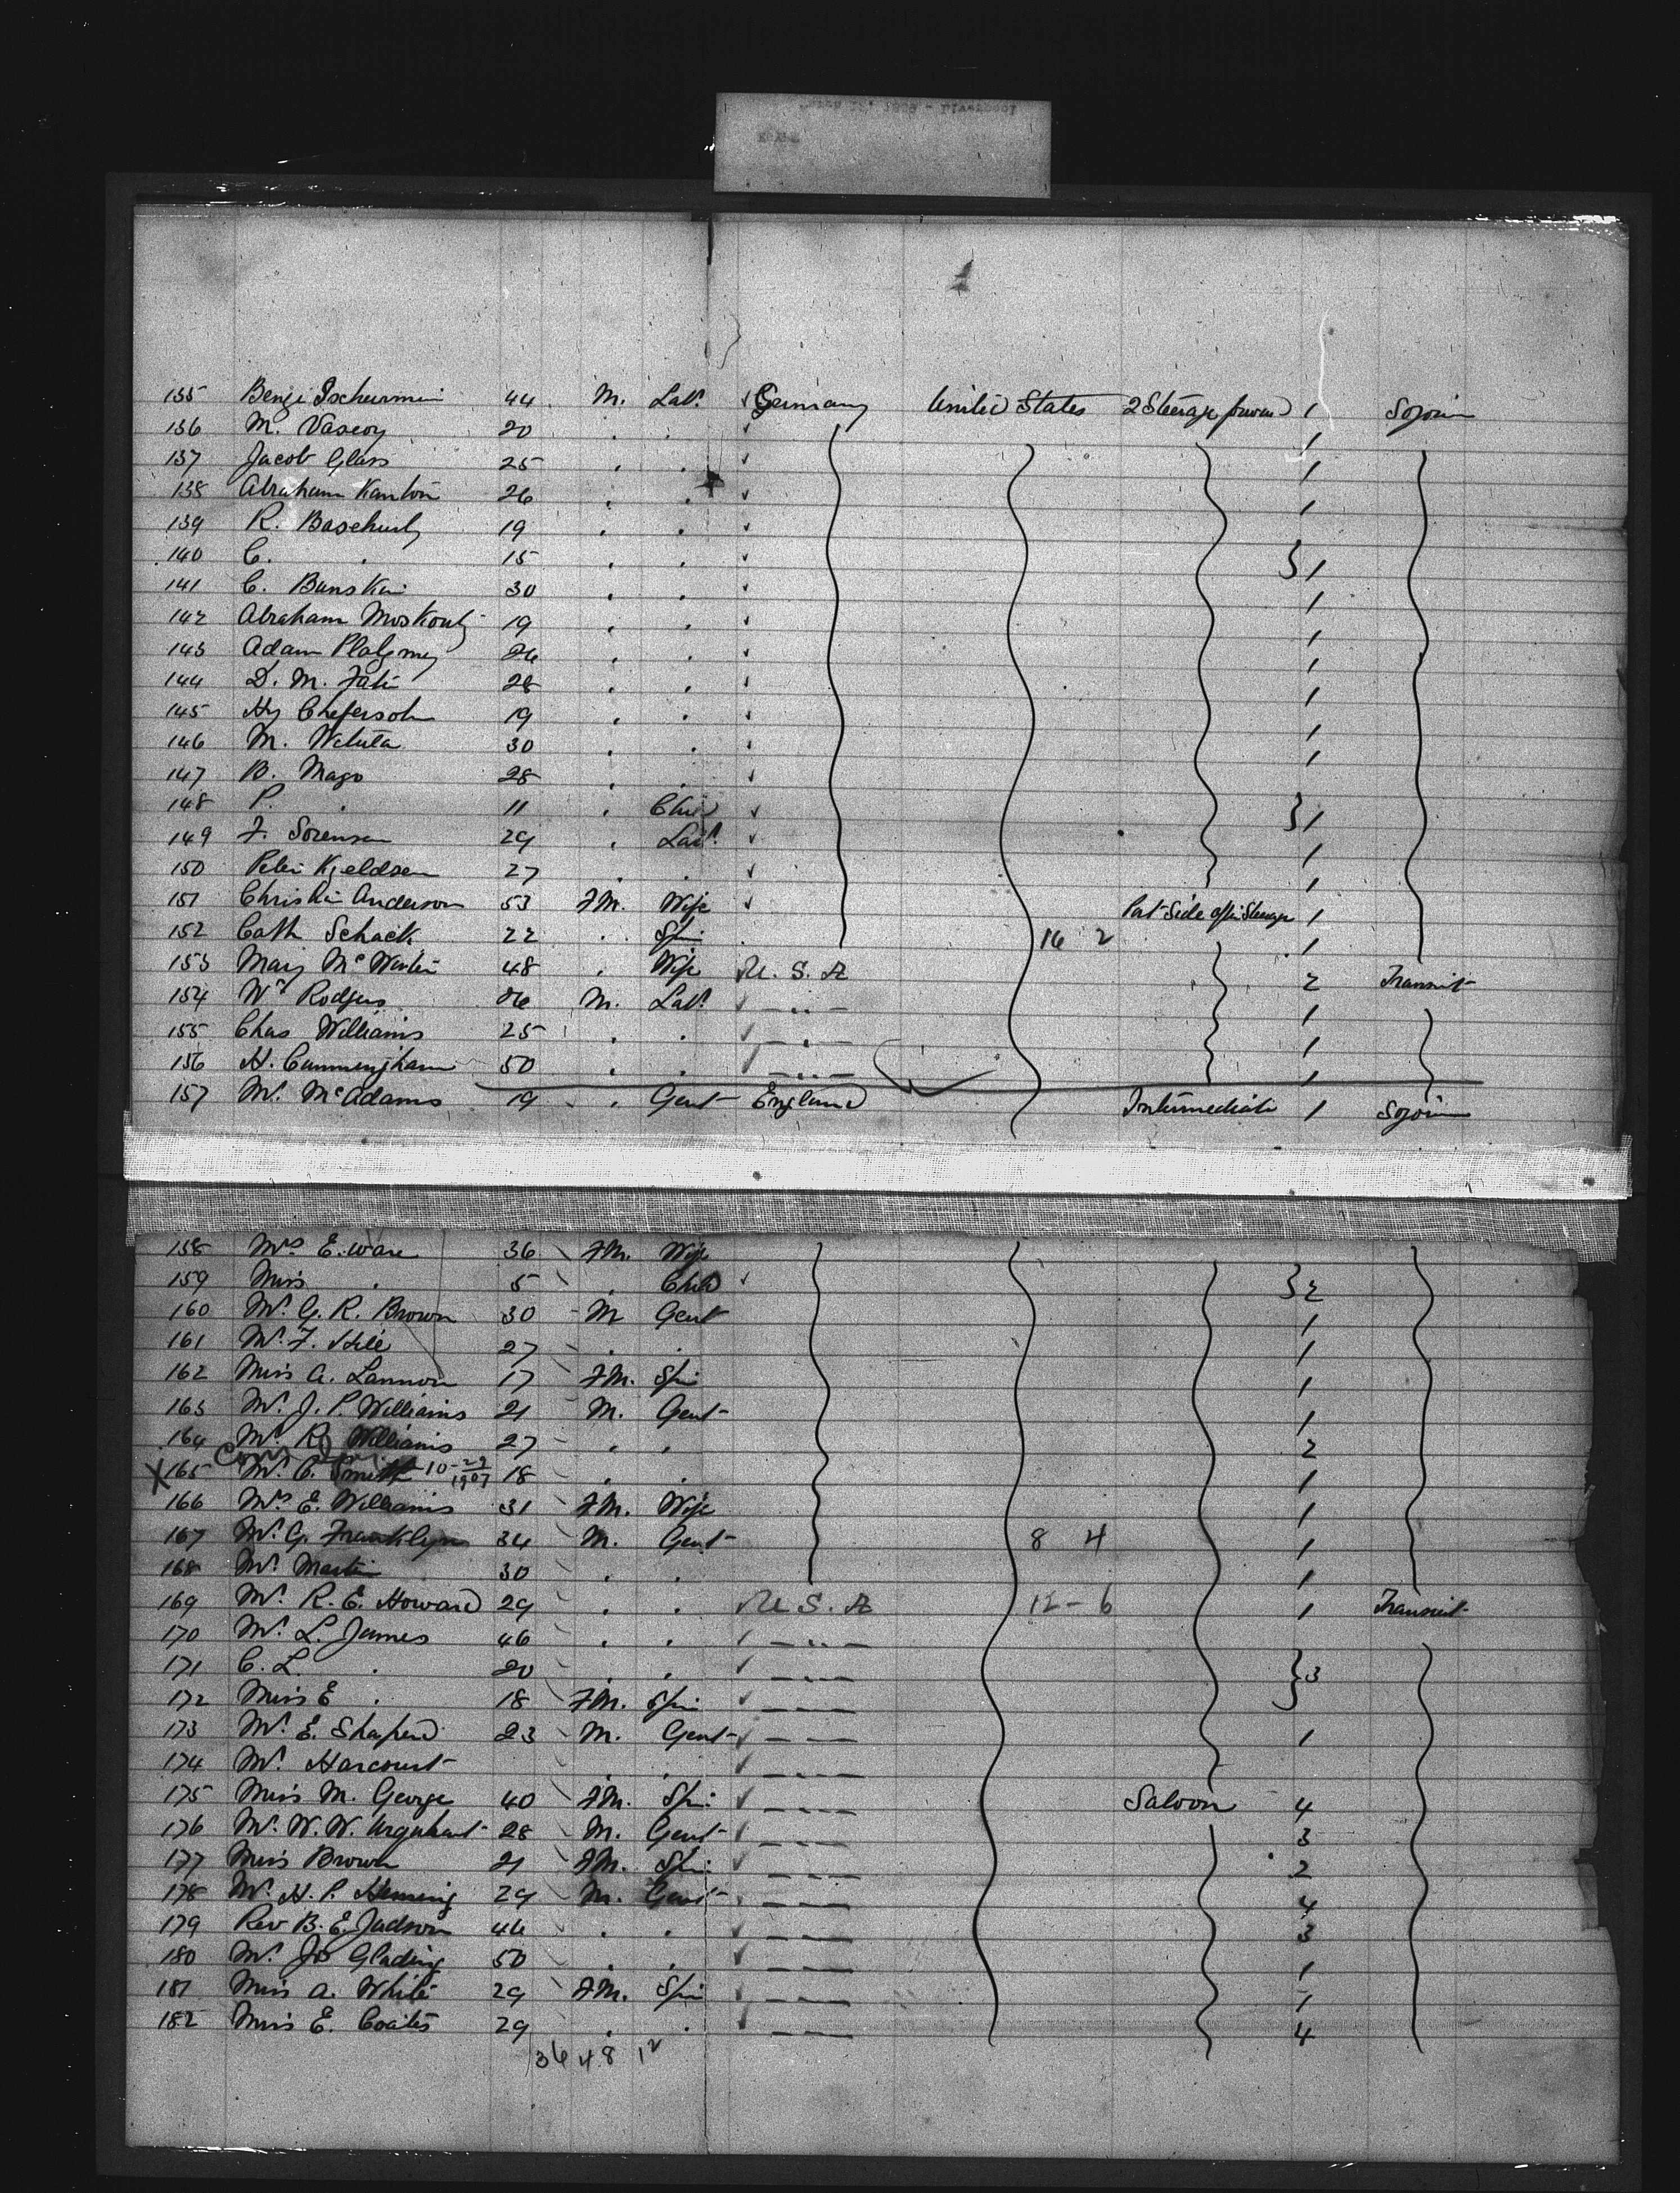 135 Benje 44 M. Labr Germany United States 2 Steerage forward 1 Sojourn
136 M. Vascoy 20 . . 1
137 Jacob Glass 25 . . 1
138 Abraham Kanton 26 . . 1
139 R. 19 . .
140 C. . 15 . . } 1
141 C. Bunskin 30 . . 1
142 Abraham Moskoutz 19 . . 1
143 Adam 26 . . 1
144 D. M. 28 . . 1
145 Hy Chefersohn 19 . . 1
146 M. Waluta 30 . . 1
147 B. Mago 28 . .
148 P. . 11 . Child } 1
149 F. Sorensen 29 . Labr 1
150 Peter Kjeldsen 27 . . 1
151 Christin Anderson 53 FM. Wife Port Side after Steerage 1
152 Cath Schack 22 . Spin . 16 2 1
153 Mary McWerter 48 . Wife U. S. A 2 Transit
154 Wm Rodgers 26 M. Labr — " — 1
155 Chas Williams 25 . . — " — 1
156 H. Cunningham 50 . . — " — 1
157 Mr. McAdams 19 . Gent England Intermediate 1 Sojourn
158 Mrs E. Ware 36 FM. Wife
159 Miss . 5 . Child } 2
160 Mr. G. R. Brown 30 M Gent 1
161 Mr. F. Hile 27 . . 1
162 Miss A. Lannon 17 FM. Spin 1
163 Mr. J. P. Williams 21 M. Gent 1
164 Mr. R. Williams 27 . . 2
X 165 Mr. C. Smith 10-29 1907 18 . . 1
166 Mrs E. Williams 31 FM. Wife 1
167 Mr. G. Franklyn 34 M. Gent 8 4 1
168 Mr. Martin 30 . . 1
169 Mr. R. E. Howard 29 . . U S. A 12 - 6 1 Transit
170 Mr. L. James 46 . . — " —
171 C. L. . 20 . . — " — } 3
172 Miss E . 18 FM. Spin — " —
173 Mr. E. Shaperd 23 M. Gent — " — 1
174 Mr. Harcourt . . — " —
175 Miss M. George 40 FM. Spin — " — Saloon 4
176 Mr. W. W. Urquhart 28 M. Gent — " — 3
177 Miss Brown 21 FM. Spin — " — 2
178 Mr. H. P. Heming 29 M. Gent — " — 4
179 Rev B. E. Judson 46 . . — " — 3
180 Mr. Jos Glading 50 . . — " — 1
181 Miss A. White 29 FM. Spin — " — 1
182 Miss E. Coates 29 . . — " — 4
36 48 12